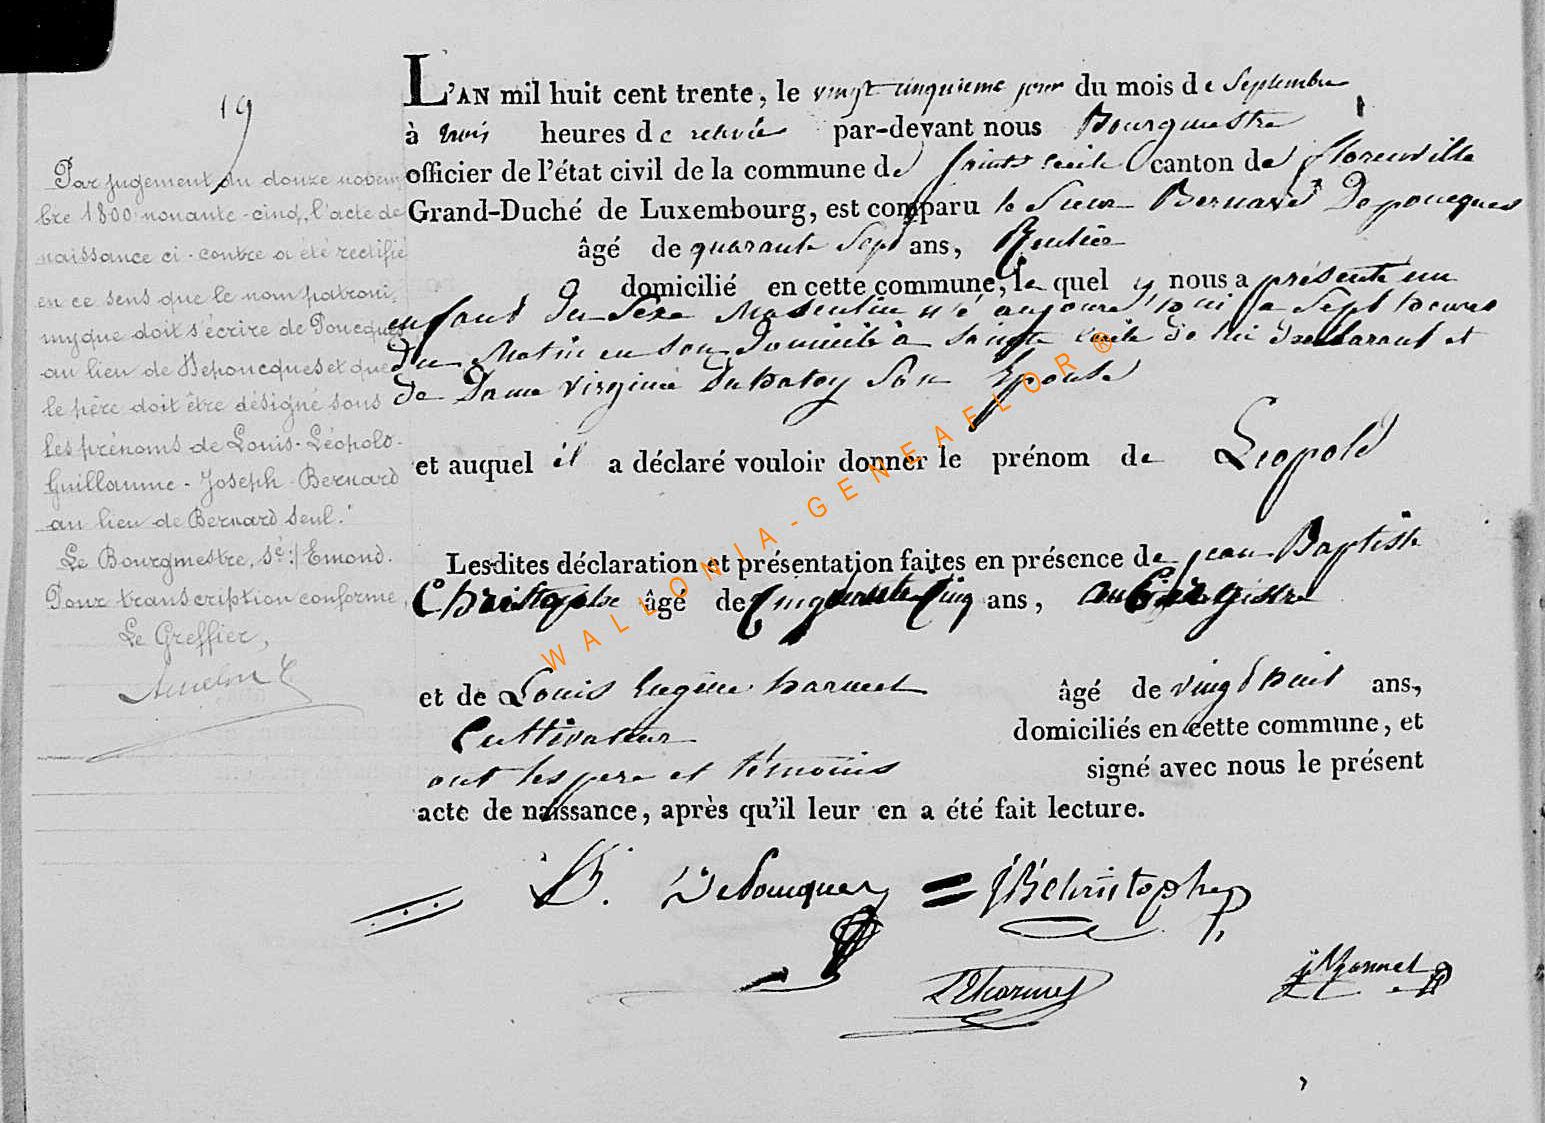 19
Par jugement du douze novem
bre 1800 nonante-cinq, l'acte de
naissance ci-contre a été rectifié
en ce sens que le nom patroni-
myque doit s'écrire de Poucques
au lieu de Depoucques et que
le père doit être désigné sous
les prénoms de Louis-Léopold-
Guillaume-Joseph-Bernard
au lieu de Bernard seul.
Le Bourgmestre, sé:/ Emond.
Pour transcription conforme,
Le Greffier,
L'AN mil huit cent trente, le vingt cinquieme jour du mois de Septembre
à trois heures de relevée par-devant nous Bourgmestre
officier de l'état civil de la commune de Sainte Cecile canton de florenville
Grand-Duché de Luxembourg, est comparu le Sieur Bernard Depoucques
âgé de quarante Sept ans, Rentier
domicilié en cette commune, le quel nous a présenté un
enfant du Sexe Masculin né aujourd'hui a Sept heures
du Matin en son Domicile a Sainte Cecile de lui Declarant et
de Dame Virginie Duhatoy Son Epouse
et auquel il a déclaré vouloir donner le prénom de Léopold
Lesdites déclaration et présentation faites en présence de jean Baptiste
Christophe âgé de Cinquante Cinq ans, aubergiste
et de Louis Eugène harmel âgé de vingt huit ans,
Cultivateur domiciliés en cette commune, et
ont les pere et témoins signé avec nous le présent
acte de naissance, après qu'il leur en a été fait lecture.
B. DePoucques = JBChristophe
LEharmel
WALLONIA-GENEAFLOR®